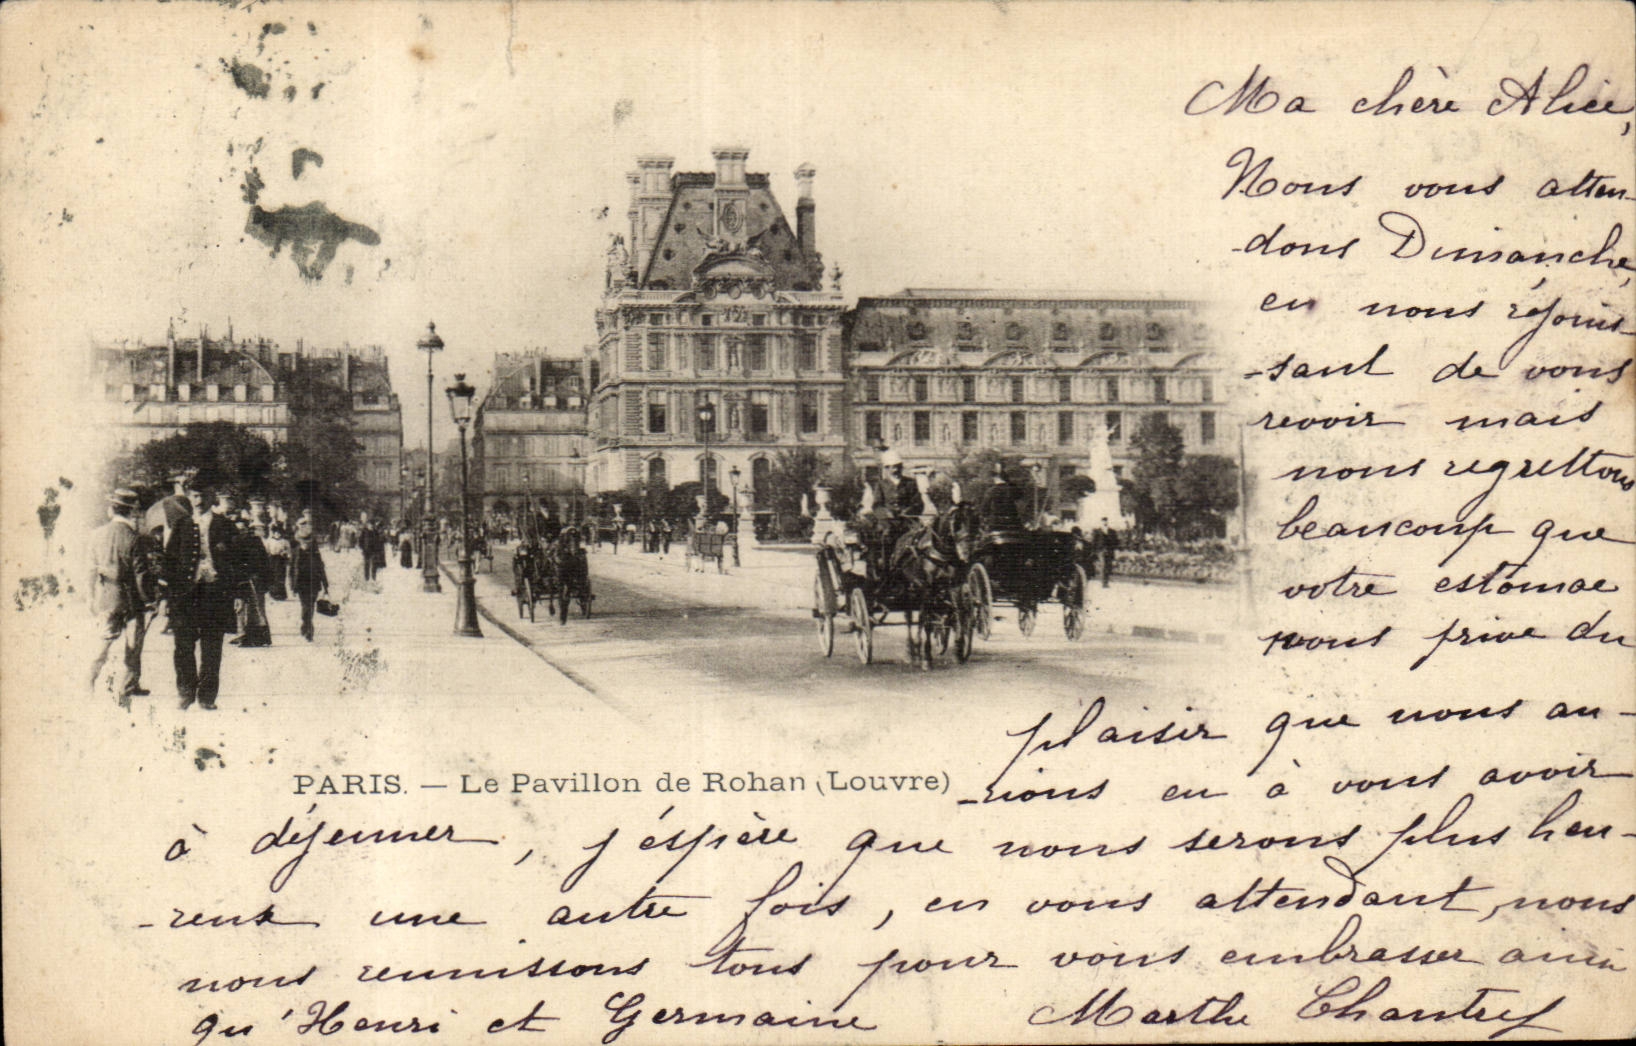 Ma chère Alice,
Nous vous atten-
-dons Dimanche,
en nous réjouis-
-sant de vous
revoir mais
nous regrettons
beaucoup que
votre estomac
nous prive du
plaisir que nous au-
PARIS. — Le Pavillon de Rohan (Louvre)
-rions eu à vous avoir
à déjeuner, j'éspère que nous serons plus heu-
-reux une autre fois, en vous attendant, nous
nous reunissons tous pour vous embrasser ainsi
qu'Henri et Germaine Marthe Chantrel